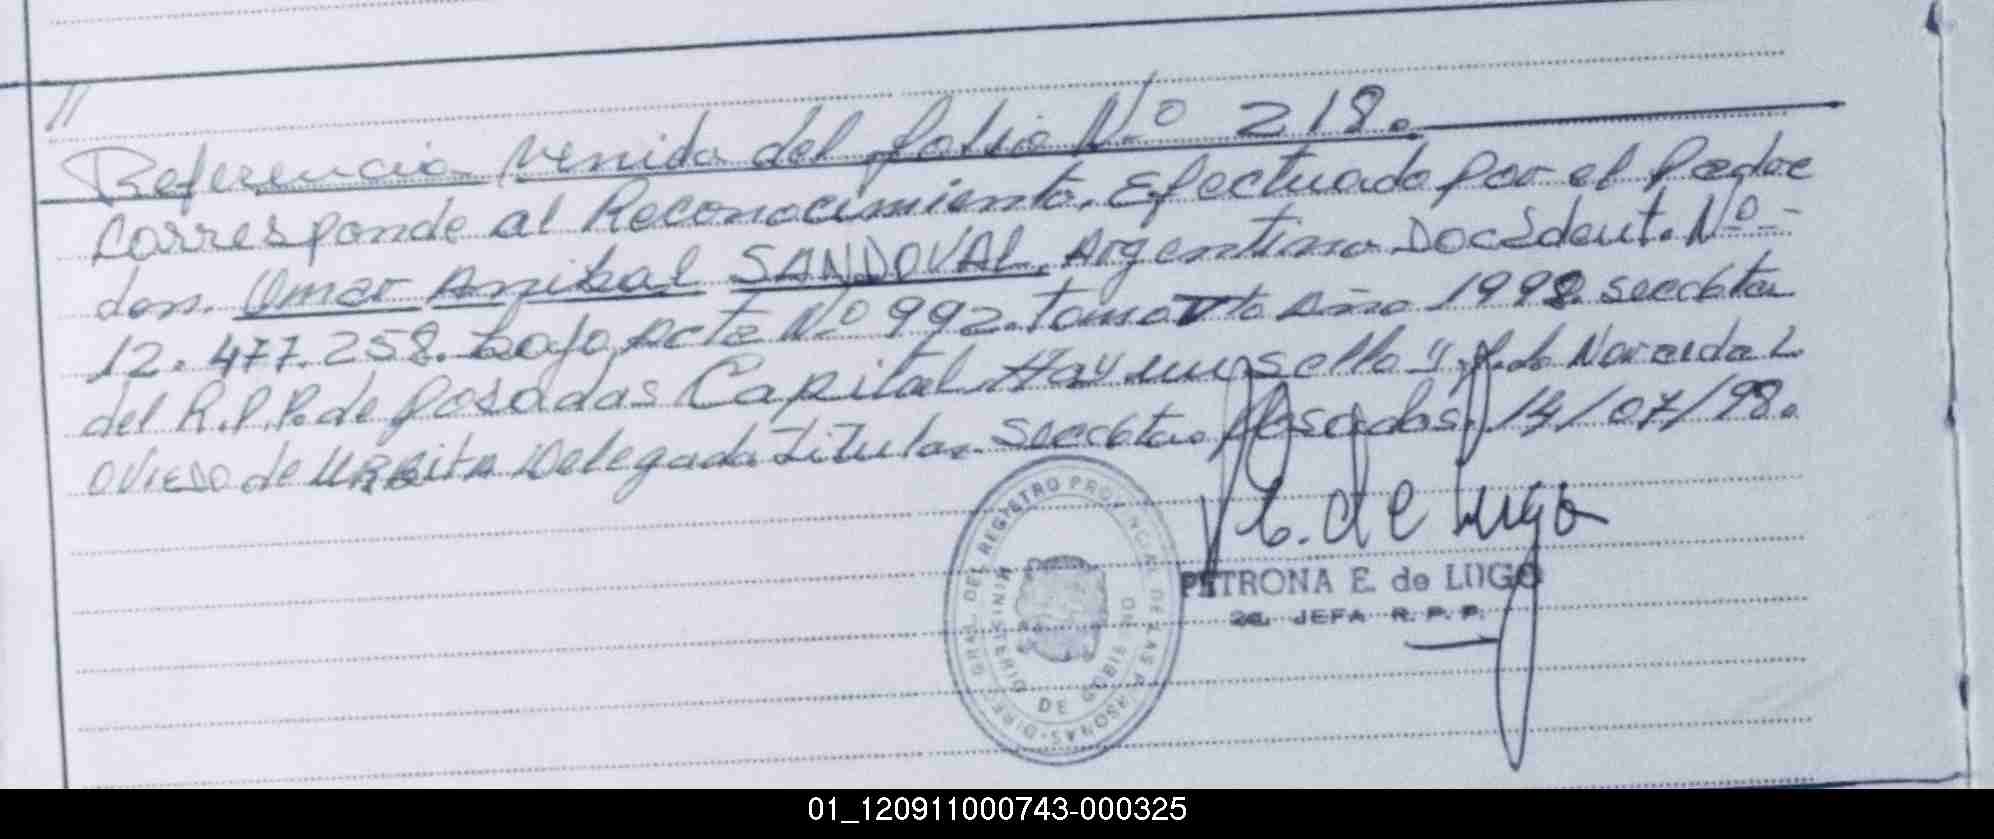 //
Referencia venida del folio N.º 218.
Corresponde al Reconocimiento. Efectuado por el Padre
don. Omar Anibal SANDOVAL, Argentino Doc. Ident. Nº -
12.477.258. bajo Acta Nº 992. tomo Vto Año 1998. secc 6ta
del R.P.P. de Posadas Capital Hay un sello "
Oviedo de URBITA Delegada Titular. Secc 6ta. Posadas. 14/07/98.
E. de Lugo
PETRONA E. de LUGO
2a. JEFA R. P. P.
DIRE. GRAL. DEL REGISTRO PROVINCIAL DE LAS PERSONAS
MINISTERIO DE GOBIERNO
01_120911000743-000325